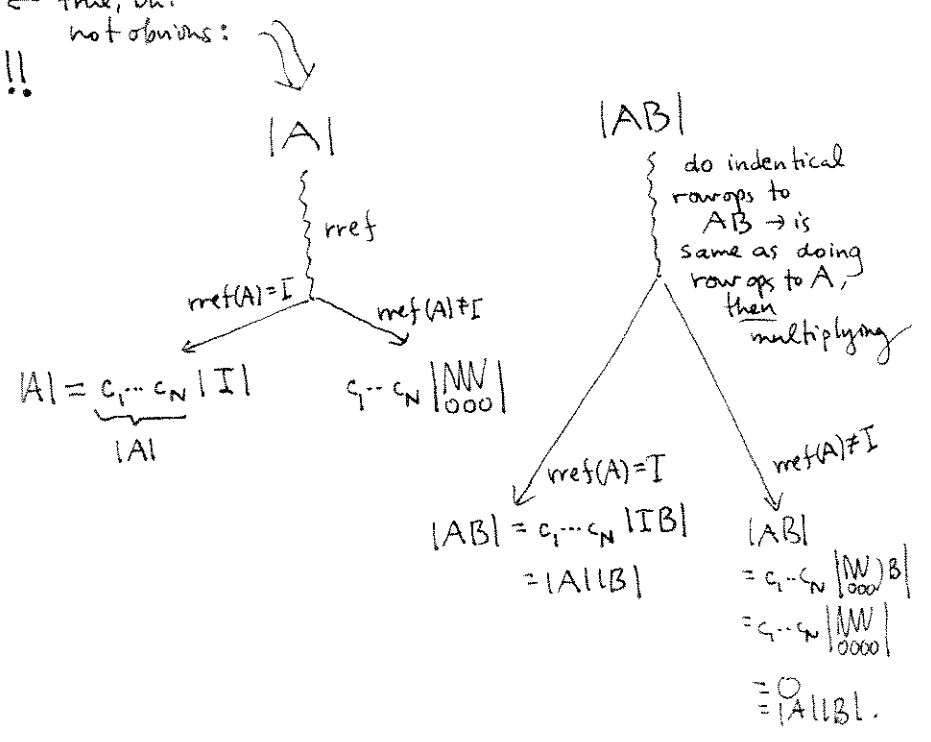 ← true, but
not obvious:
!!
|A|
rref
rref(A)=I
rref(A)≠I
|A| = c₁⋯c_N |I|
|A|
c₁⋯c_N |000|
|AB|
do indentical
row ops to
AB → is
same as doing
row ops to A,
then
multiplying
rref(A)=I
rref(A)≠I
|AB| = c₁⋯c_N |IB|
= |A||B|
|AB|
= c₁⋯c_N |(000)B|
= c₁⋯c_N |0000|
= 0
= |A||B|.